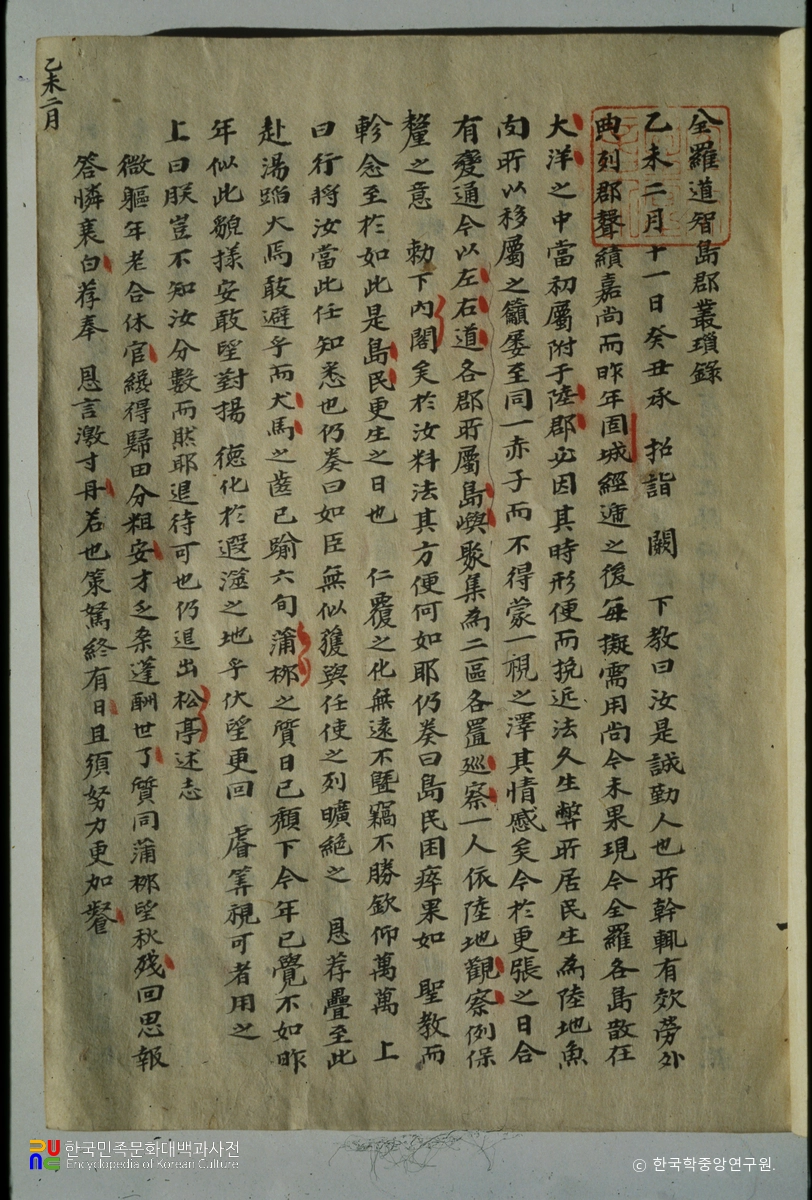 全羅道智島郡叢瑣錄
乙未二月十一日癸丑承 招詣 闕 下教曰汝是誠勤人也所幹輒有效勞外
典列郡聲績嘉尚而昨年固城經遞之後每擬需用尚今未果現今全羅各島散在
大洋之中當初屬附于陸郡必因其時形便而挽近法久生弊所居民生為陸地魚
肉所以移屬之籲屢至同一赤子而不得蒙一視之澤其情慼矣今於更張之日合
有變通今以左右道各郡所屬島嶼聚集為二區各置巡察一人依陸地觀察例保
釐之意 勅下內閣矣於汝料法其方便何如耶仍奏曰島民困瘁果如 聖教而
軫念至於如此是島民更生之日也 仁覆之化無遠不曁竊不勝欽仰萬萬 上
曰行將汝當此任知悉也仍奏曰如臣無似獲與任使之列曠絶之 恩荐疊至此
赴湯蹈火焉敢避乎而犬馬之齒已踰六旬蒲柳之質日已頹下今年已覺不如昨
年似此貌樣安敢望對揚 德化於遐澨之地乎伏望更回 睿筭視可者用之
上曰朕豈不知汝分數而然耶退待可也仍退出松亭述志
微軀年老合休官纔得歸田分粗安才乏柰蓬酬世了質同蒲柳望秋殘回思報
答憐衰白荐奉 恩言激寸丹若也策駑終有日且須努力更加餐
乙未二月
한국민족문화대백과사전
Encyclopedia of Korean Culture
© 한국학중앙연구원.